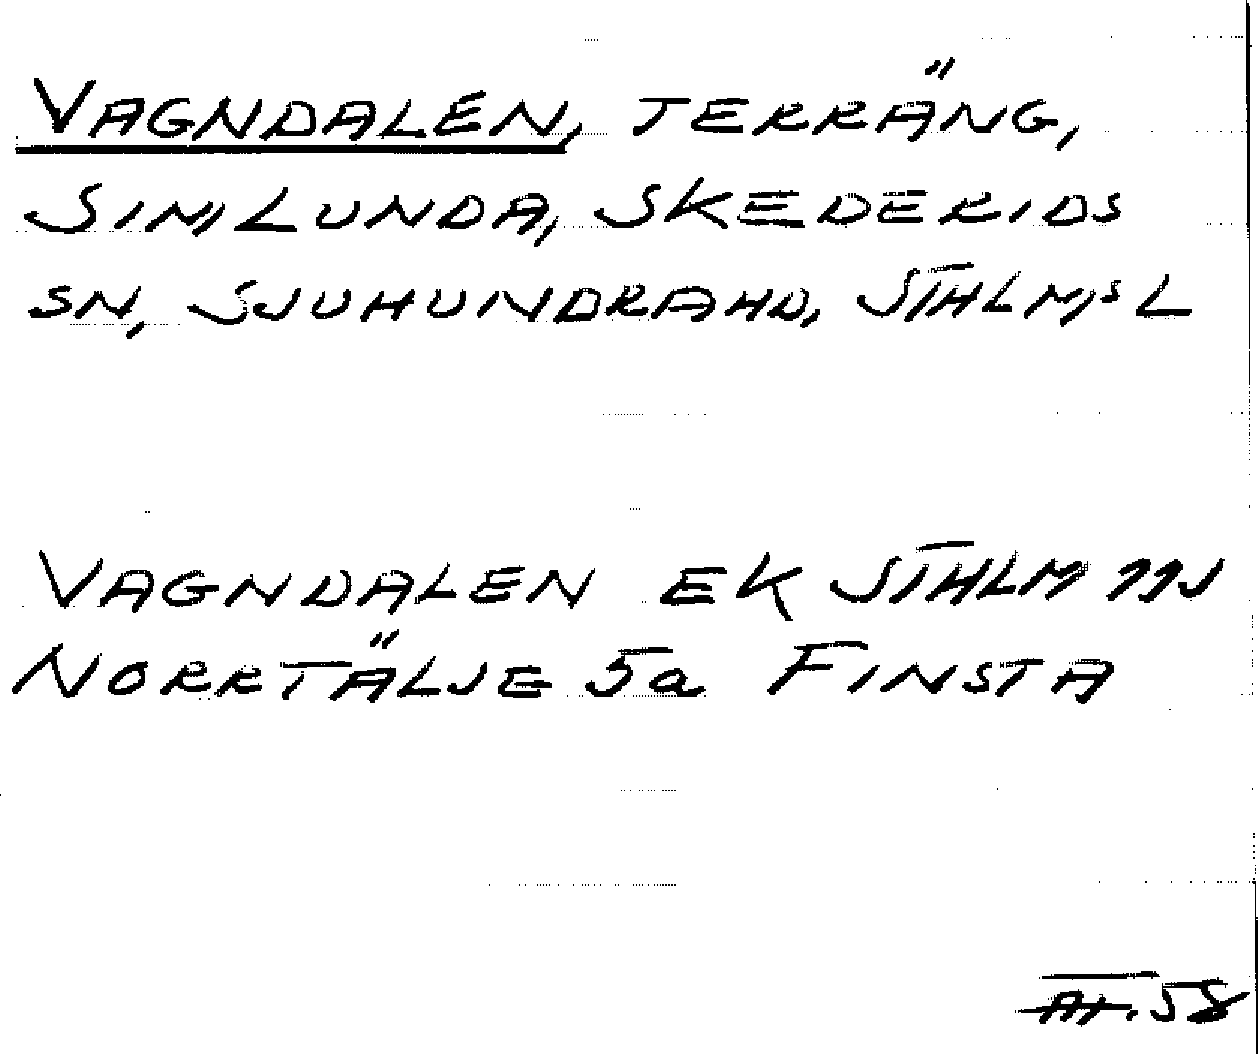 VAGNDALEN, TERRÄNG,
SIMLUNDA, SKEDERIDS
SN, SJUHUNDRA HD, STHLMS L
VAGNDALEN EK STHLM 11J
NORRTÄLJE 5a FINSTA
58